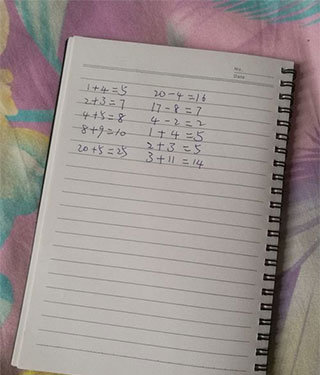 No.
Date
1+4=5
2+3=7
4+5=8
8+9=10
20+5=25
20-4=16
17-8=7
4-2=2
1+4=5
2+3=5
3+11=14